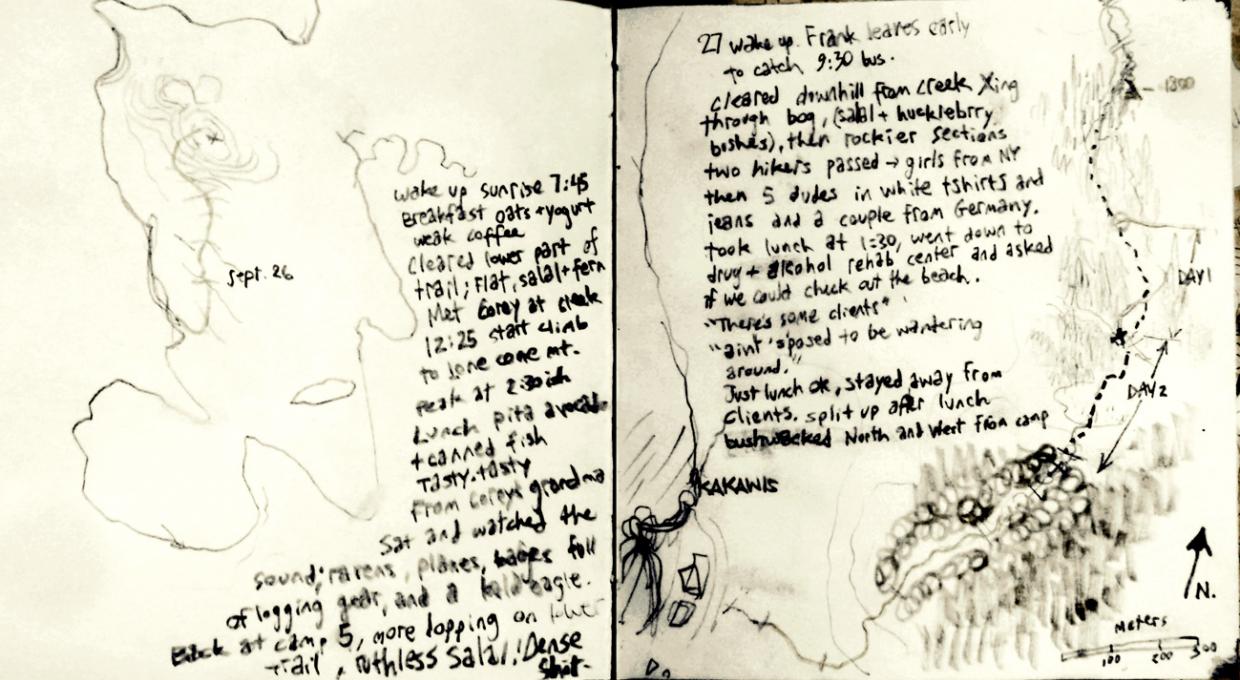 sept. 26
wake up sunrise 7:45
Breakfast oats + yogurt
weak coffee
Cleared lower part of
trail; Flat, salal + fern
Met Corey at creek
12:25 start climb
to lone cone mt.
peak at 2:30ish
Lunch pita avocado
+ canned fish
Tasty. tasty
From Coreys grandma
Sat and watched the
sound; ravens, planes, barges full
of logging gear, and a bald eagle.
Back at camp 5, more lopping on lower
trail, ruthless Salal! Dense
Shit-
27 wake up. Frank leaves early
to catch 9:30 bus.
cleared downhill from creek Xing
through bog, (salal + huckleberry
boshes), then rockier sections
two hikers passed → girls from NY
then 5 dudes in white tshirts and
jeans and a couple from Germany.
took lunch at 1:30, went down to
drug + alcohol rehab center and asked
if we could check out the beach.
"There's some clients"
"aint 'sposed to be wantering
around."
Just lunch ok, stayed away from
clients. split up after lunch
bushwacked North and West from camp
KAKAWIS
DAY 1
DAY 2
N.
Meters
100 200 300